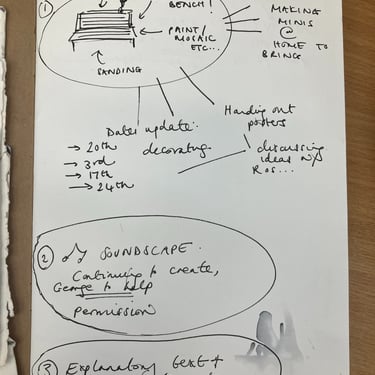 ①
BENCH!
PAINT/
MOSAIC
ETC...
SANDING
MAKING
MINIS
@
HOME TO
BRING
Handing out
posters
Dates update:
decorating
→ 20th
→ 3rd
→ 17th
→ 24th
discussing
ideas w/
Ros...
② SOUNDSCAPE.
Continuing to create,
George to help
permission
③ Explanatory text +